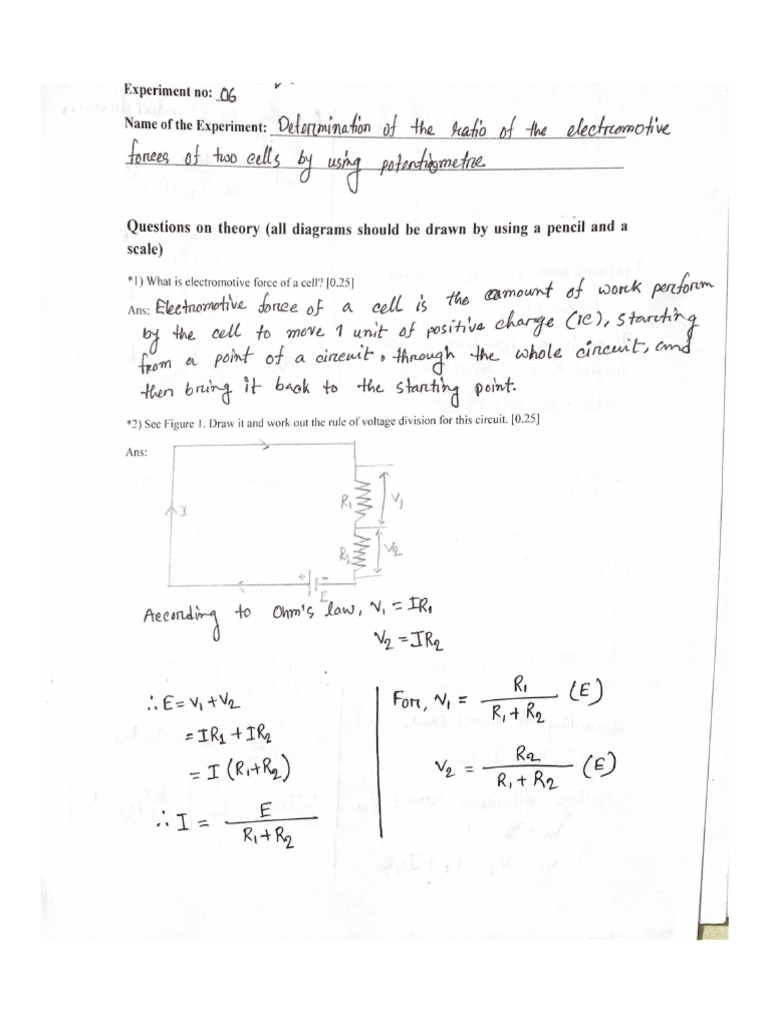 Experiment no: 06
Name of the Experiment: Determination of the ratio of the electromotive
forces of two cells by using potentiometre
Questions on theory (all diagrams should be drawn by using a pencil and a
scale)
*1) What is electromotive force of a cell? [0.25]
Ans: Electromotive force of a cell is the amount of work perform
by the cell to move 1 unit of positive charge (1C), starting
from a point of a circuit, through the whole circuit, and
then bring it back to the starting point.
*2) See Figure 1. Draw it and work out the rule of voltage division for this circuit. [0.25]
Ans:
I
R₁
V₁
R₂
V₂
+ -
E
According to Ohm's law, V₁ = IR₁
V₂ = IR₂
∴ E = V₁ + V₂
= IR₁ + IR₂
= I (R₁+R₂)
∴ I = E / R₁+R₂
For, V₁ = R₁ / R₁+R₂ (E)
V₂ = R₂ / R₁+R₂ (E)